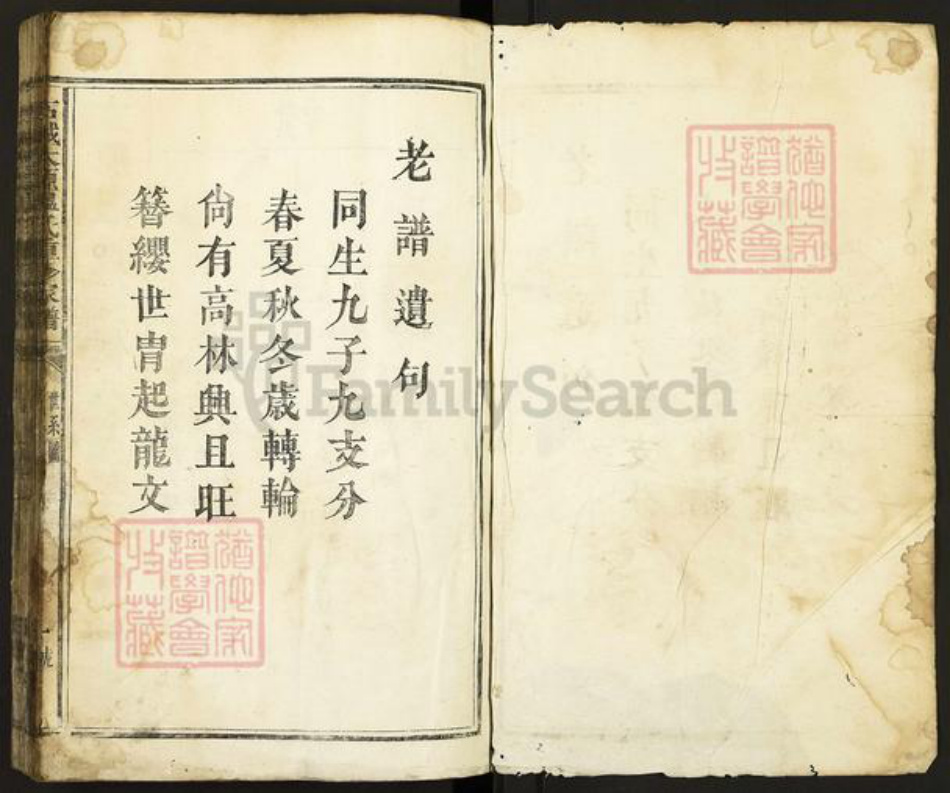 老譜遺句
同生九子九支分
春夏秋冬歲轉輪
尙有高林興且旺
簪纓世冑起龍文
猶他家
譜學會
收藏
猶他家
譜學會
收藏
FamilySearch